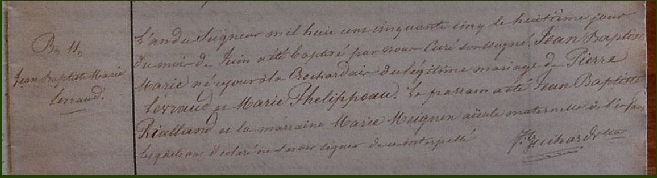 B. 11.
Jean Baptiste Marie
L'an du Seigneur mil huit cent cinquante cinq le huitième jour
du mois de Juin a été baptisé par nous Curé soussigné Jean Baptiste
Marie né ce jour à la du légitime mariage de Pierre
et de Marie Phelippeau. Le parrain a été Jean Baptiste
et la marraine Marie Meignen aïeule maternelle de l'enfant
lesquels ont déclaré ne savoir signer de ce interpellé